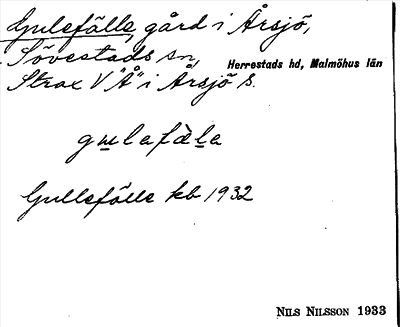 Gulefälle, gård i Årsjö,
Sövestads sn, Herrestads hd, Malmöhus län
Strax V "Å" i Årsjö s.
gulafàla
Gullefälle kb 1932
NILS NILSSON 1933